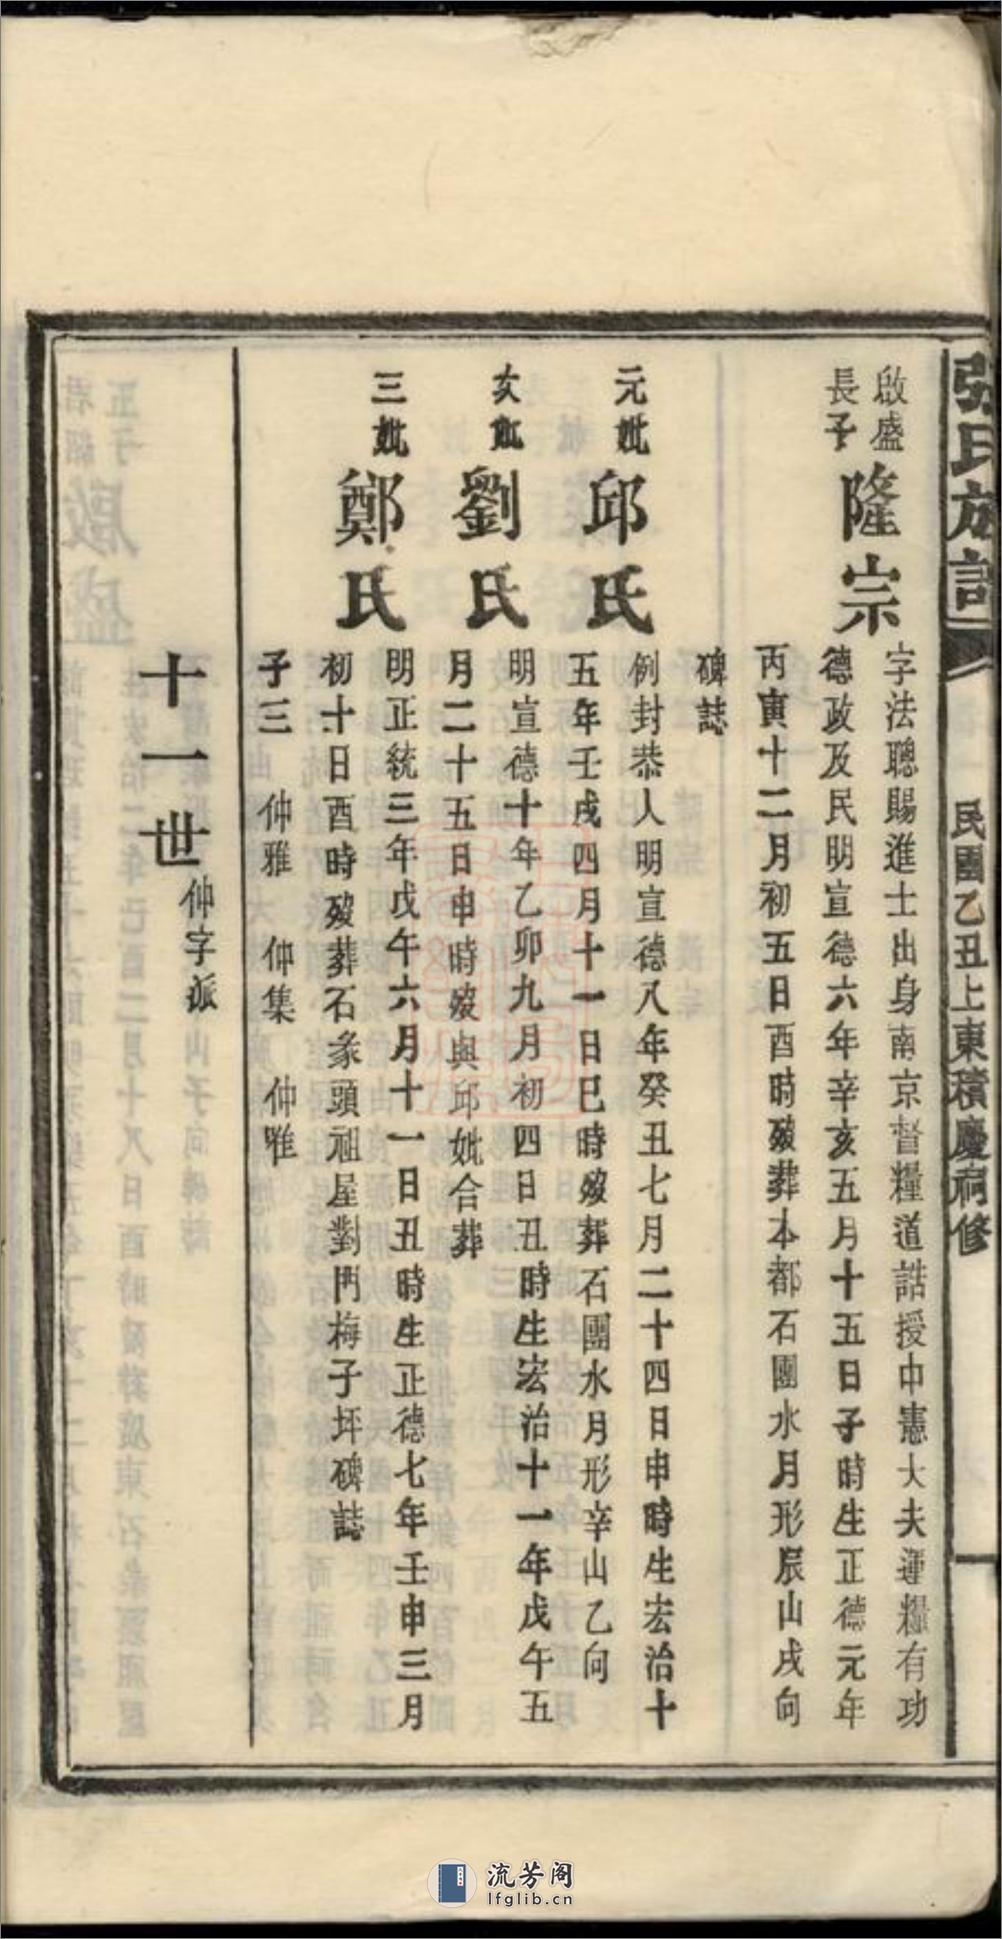 張氏族譜
民國乙丑上東積慶祠修
啟盛
長子
隆宗
字法聰賜進士出身南京督糧道誥授中憲大夫運糧有功
德政及民明宣德六年辛亥五月十五日子時生正德元年
丙寅十二月初五日酉時歿葬本都石團水月形辰山戌向
碑誌
元妣
邱氏
例封恭人明宣德八年癸丑七月二十四日申時生宏治十
五年壬戌四月十一日巳時歿葬石團水月形辛山乙向
次妣
劉氏
明宣德十年乙卯九月初四日丑時生宏治十一年戊午五
月二十五日申時歿與邱妣合葬
三妣
鄭氏
明正統三年戊午六月十一日丑時生正德七年壬申三月
初十日酉時歿葬石彖頭祖屋對門梅子坪碑誌
子三 仲雅 仲集 仲唯
十一世
仲字派
流芳阁
lfglib.cn